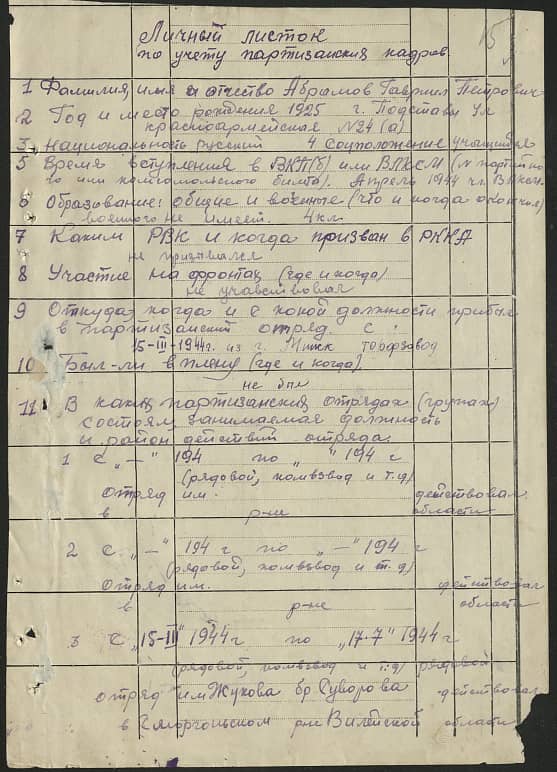 15
Личный листок
по учету партизанских кадров.
1 Фамилия, имя и отчество Абрамов Гавриил Петрович
2 Год и место рождения 1925 г. Подставы ул
красноармейская №24 (а)
3. Национальность русский 4 Соцположение учащийся
5 Время вступления в ВКП(б) или ВЛКСМ (№ партийно
го или комсомольского билета). Апрель 1944 ч.
6 Образование: общие и военные (что и когда окончил)
военного не имеет. 4 кл.
7 Каким РВК и когда призван в РККА
не призывался
8 Участие на фронтах (где и когда)
не учавствовал
9 Откуда, когда и с какой должности прибыл
в партизанский отряд. с
15-III-1944г. из г. Минск торфзавод
10 Был-ли в плену (где и когда).
не был
11 В каких партизанских отрядах (групах)
состоял, занимаемая должность
и район действий отряда.
1 С „—" 194 по „ " 194 г
(рядовой, комвзвод и т.д)
отряд им. действовал
в р-не области
2 С „—" 194 г по „—" 194 г
(рядовой, комвзвод и т.д)
отряд им. действовал
в р-не области
3 С „15-III" 1944 г по „17-7" 1944 г
(рядовой, комвзвод и т.д) рядовой
отряд им Жукова бр Суворова действовал
в Сморгоньском р-не Вилейской области